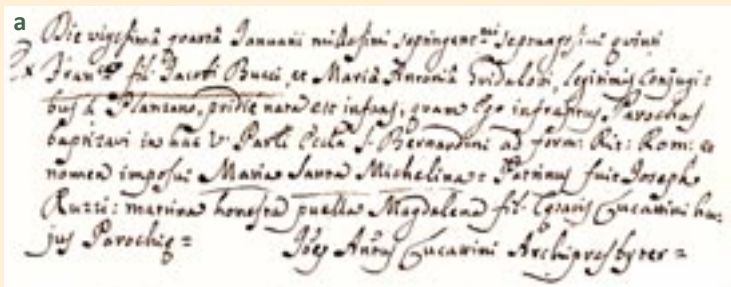 a
Die vigesima quarta Januarii millesimi septingentmi septuagesimi quinti
Ex Franco fil. Jacobi Bucci, et Maria Antonia Guidalori, legitimis Conjugi=
bus à Planzano, pridie nata est infans, quam Ego infraptus Parochus
baptizavi in hac V. Parli Eccla S. Bernardini ad form: Rit: Rom: et
nomen imposui Maria Santa Michelina= Patrinus fuit Joseph
Ruzzi: matrina honesta puella Magdalena fil. Cucarini hu=
jus Parochię =
Joēs Antus Cucarini Archipresbyter =